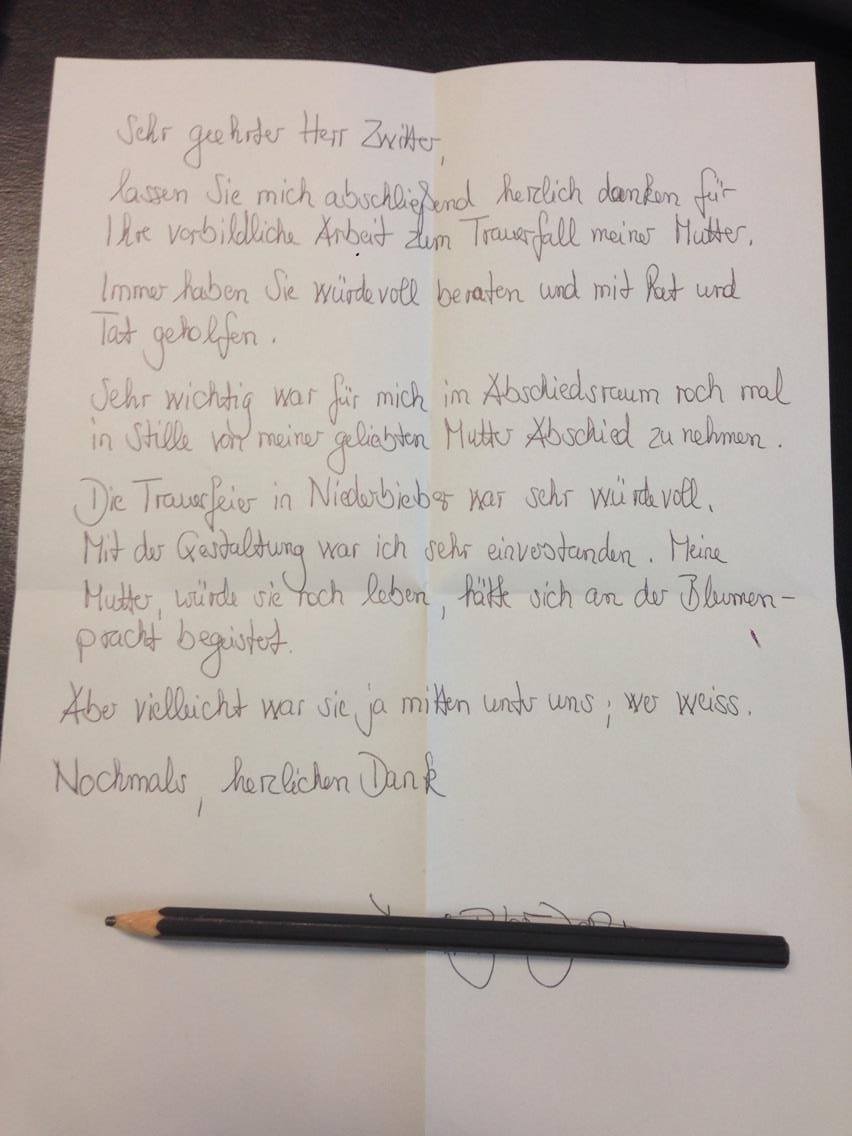 Sehr geehrter Herr Zwitter,
lassen Sie mich abschließend herzlich danken für
Ihre vorbildliche Arbeit zum Trauerfall meiner Mutter.
Immer haben Sie würdevoll beraten und mit Rat und
Tat geholfen.
Sehr wichtig war für mich im Abschiedsraum noch mal
in Stille von meiner geliebten Mutter Abschied zu nehmen.
Die Trauerfeier in Niederbieber war sehr würdevoll.
Mit der Gestaltung war ich sehr einverstanden. Meine
Mutter, würde sie noch leben, hätte sich an der Blumen-
pracht begeistert.
Aber vielleicht war sie ja mitten unter uns; wer weiss.
Nochmals, herzlichen Dank